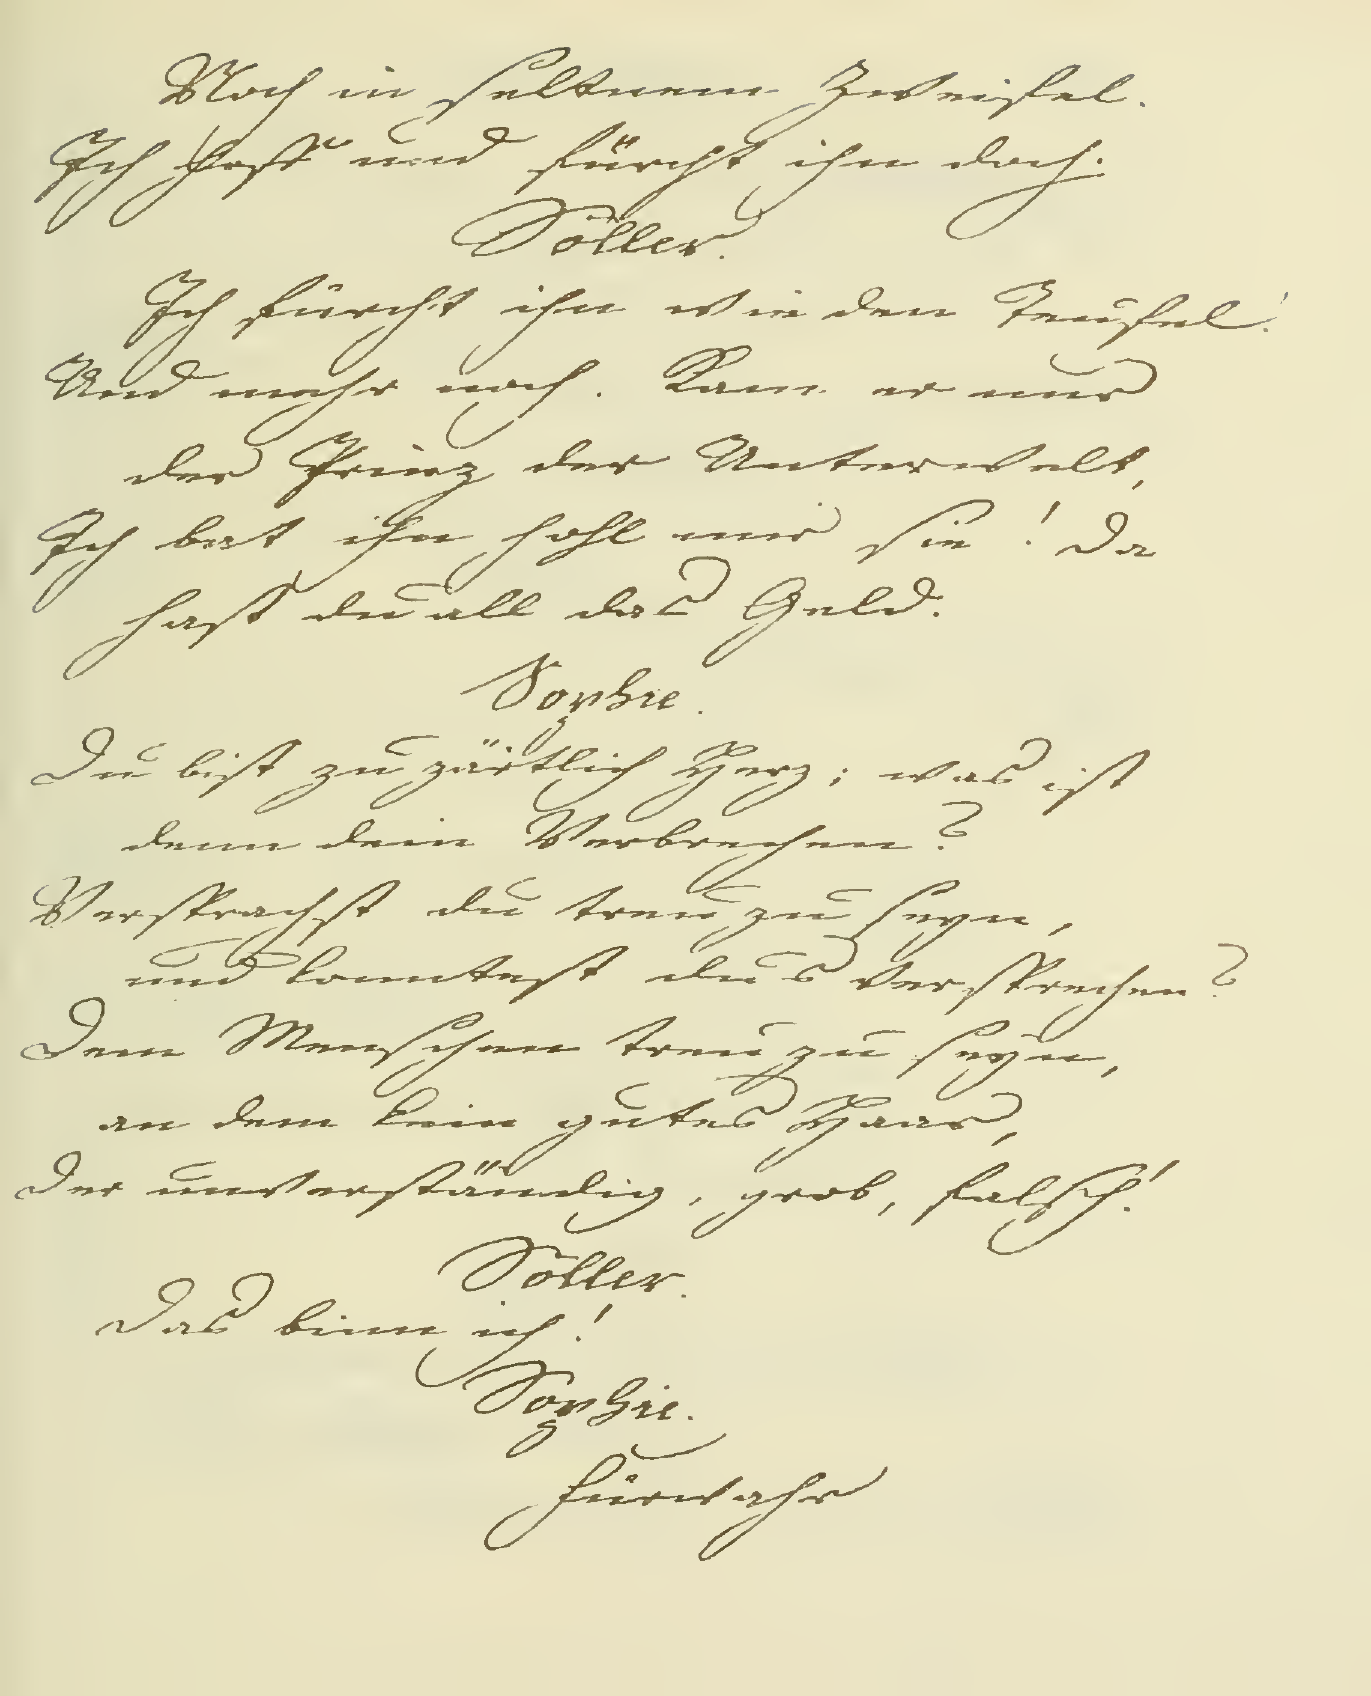 Noch in seltnem Zweifel.
Ich hass und fürcht ihn doch.
Söller.
Ich fürcht ihn wie den Teufel!
Und mehr noch. Kam er nur
der Prinz der Unterwelt,
Ich bat ihn hohl mir sie! Da
hast du all das Geld.
Sophie.
Du bist zu zärtlich Herz; was ist
denn dein Verbrechen?
Versprachst du treu zu seyn,
und konntest dus versprechen?
Dem Menschen treu zu seyn,
an dem kein gutes Haar,
Der unverständig, grob, falsch!
Söller.
Das binn ich!
Sophie.
Fürwahr